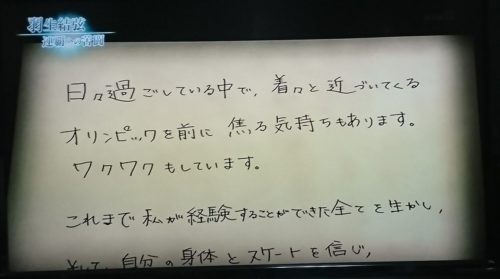 羽生結弦
連覇への
日々過ごしている中で、着々と近づいてくる
オリンピックを前に焦る気持ちもあります。
ワクワクもしています。
これまで私が経験することができた全てを生かし、
そして、自分の身体とスケートを信じ、